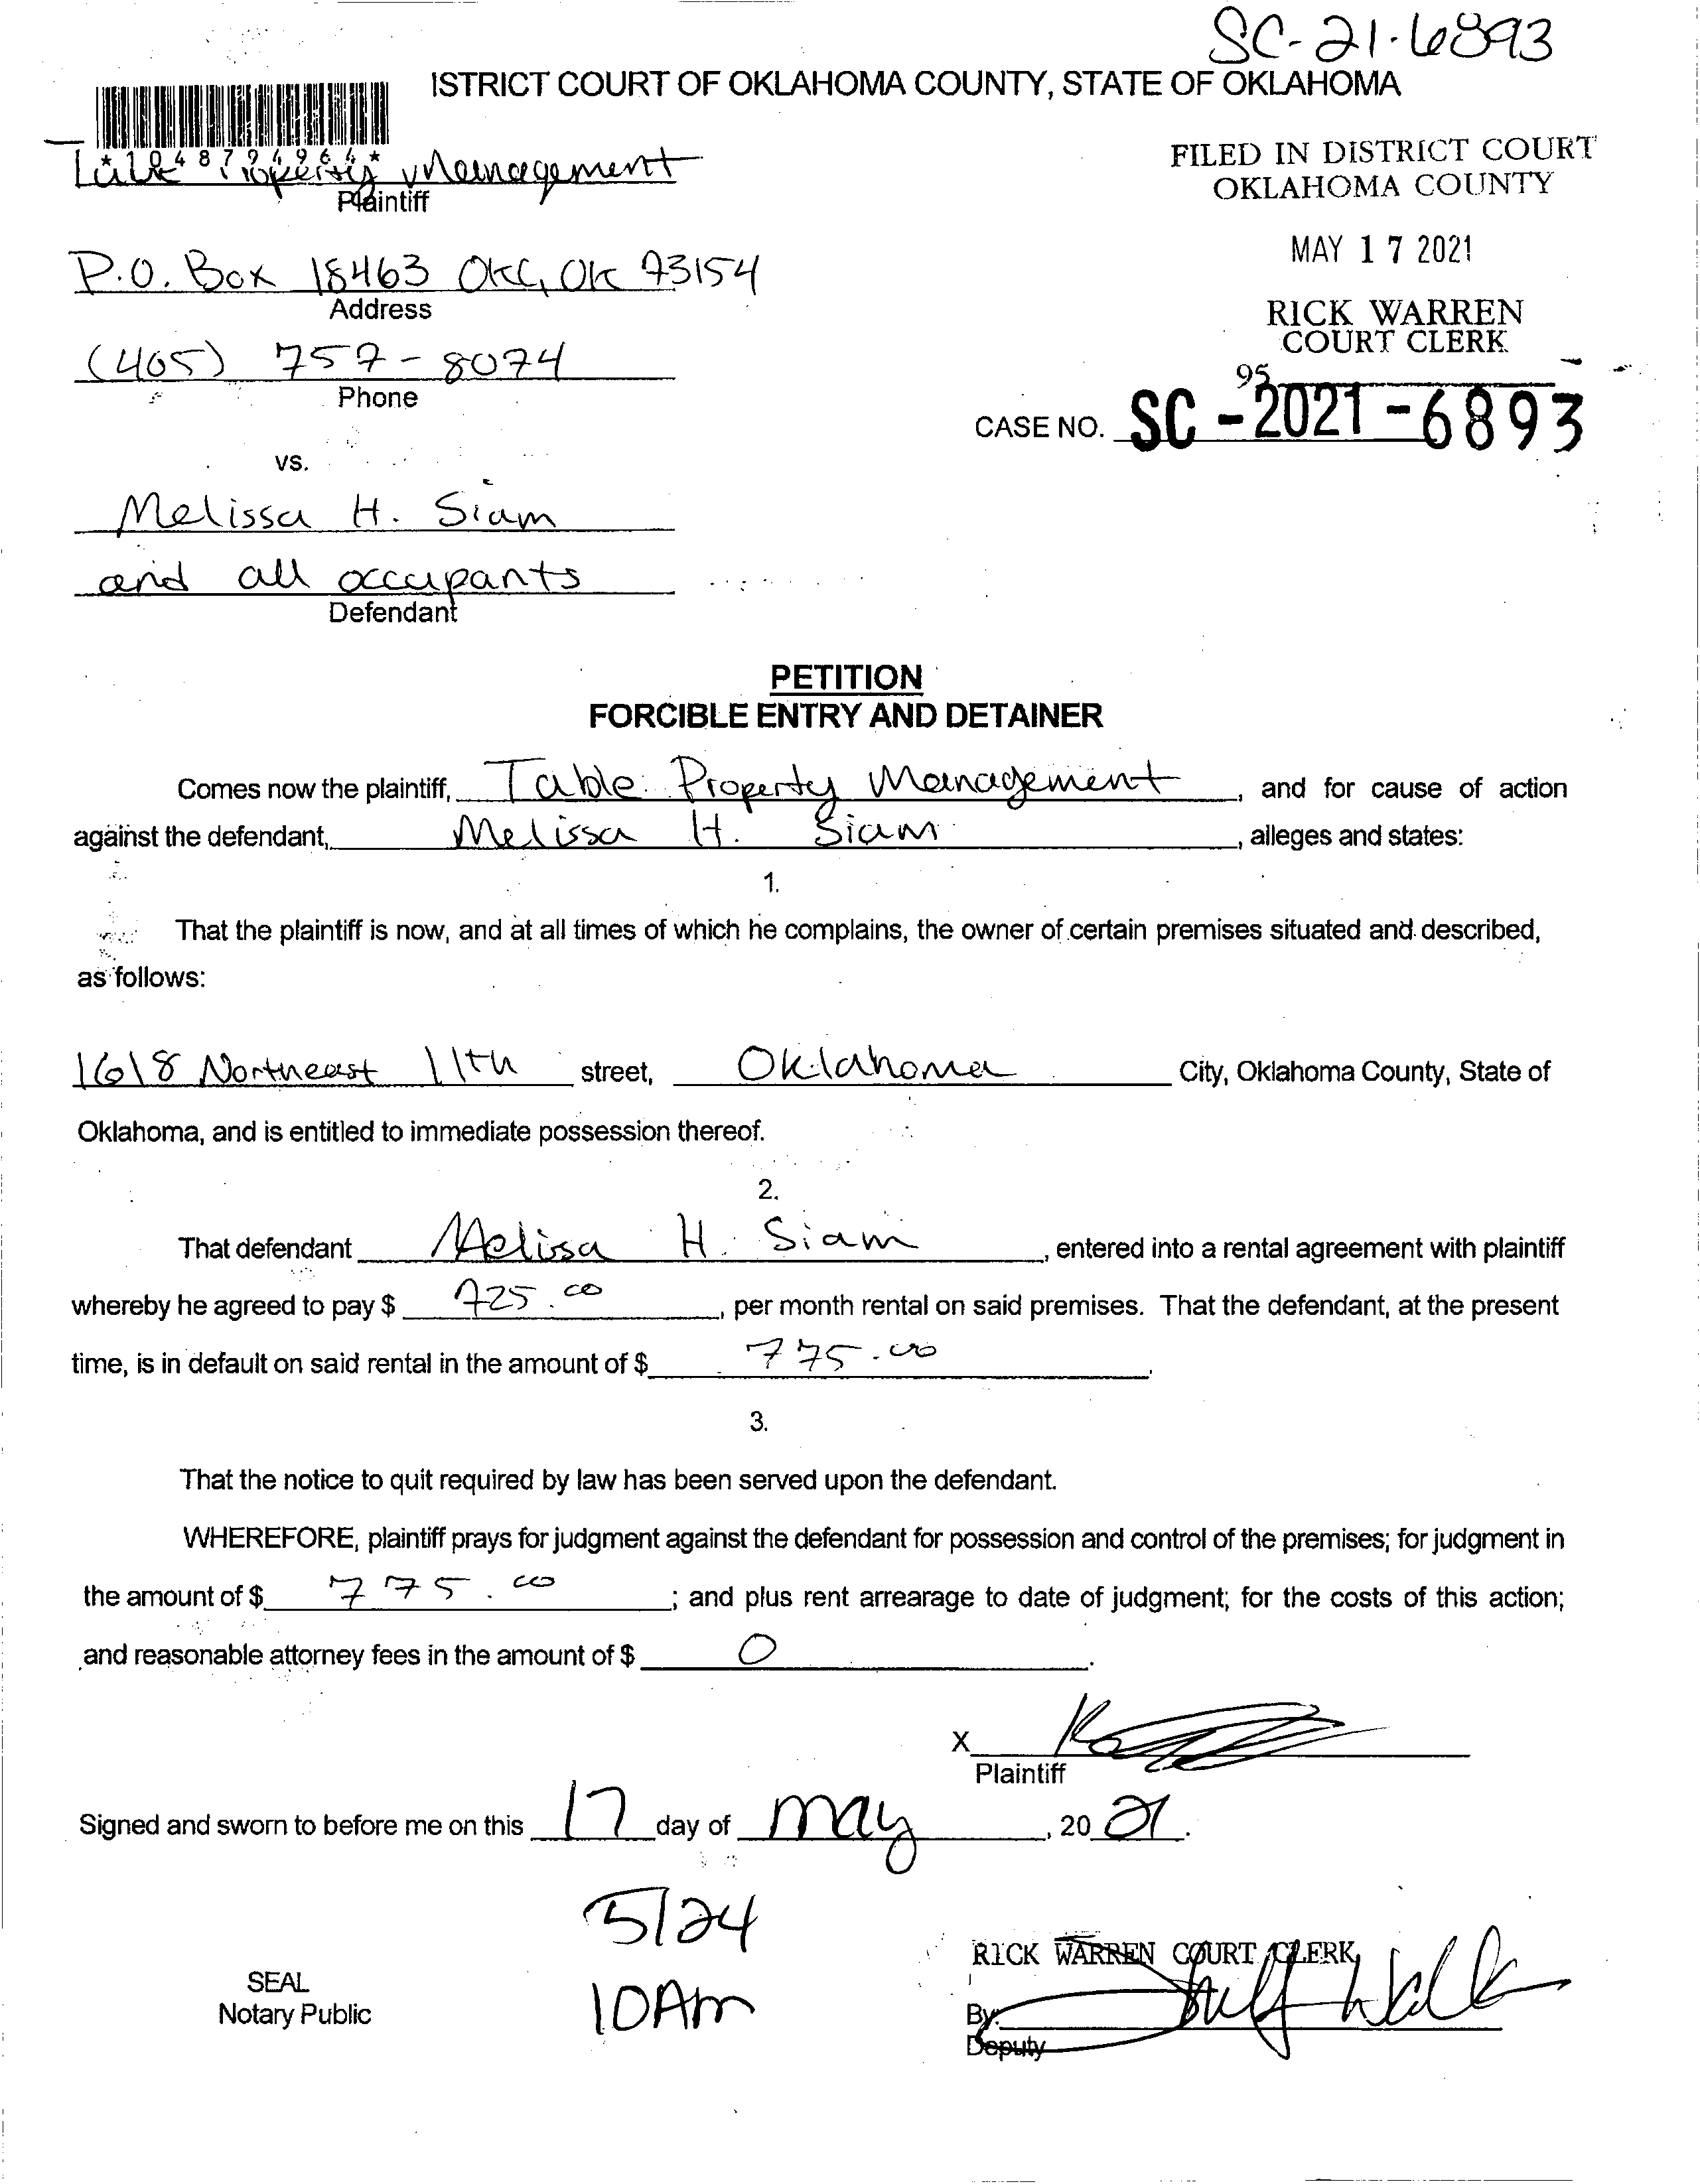 SC-21-6893
ISTRICT COURT OF OKLAHOMA COUNTY, STATE OF OKLAHOMA
*1048794964*
Property Management
Plaintiff
FILED IN DISTRICT COURT
OKLAHOMA COUNTY
MAY 17 2021
RICK WARREN
COURT CLERK
P.O. Box 18463 OKC, OK 73154
Address
(405) 757-8074
Phone
95
CASE NO. SC-2021-6893
vs.
Melissa H. Siam
and all occupants
Defendant
PETITION
FORCIBLE ENTRY AND DETAINER
Comes now the plaintiff, Table Property Management, and for cause of action
against the defendant, Melissa H. Siam, alleges and states:
1.
That the plaintiff is now, and at all times of which he complains, the owner of certain premises situated and described,
as follows:
1618 Northeast 11th street, Oklahoma City, Oklahoma County, State of
Oklahoma, and is entitled to immediate possession thereof.
2.
That defendant Melissa H. Siam, entered into a rental agreement with plaintiff
whereby he agreed to pay $ 725.00, per month rental on said premises. That the defendant, at the present
time, is in default on said rental in the amount of $ 775.00.
3.
That the notice to quit required by law has been served upon the defendant.
WHEREFORE, plaintiff prays for judgment against the defendant for possession and control of the premises; for judgment in
the amount of $ 775.00; and plus rent arrearage to date of judgment; for the costs of this action;
and reasonable attorney fees in the amount of $ 0.
X
Plaintiff
Signed and sworn to before me on this 17 day of may, 20 21.
5/24
10AM
SEAL
Notary Public
RICK WARREN COURT CLERK
By:
Deputy